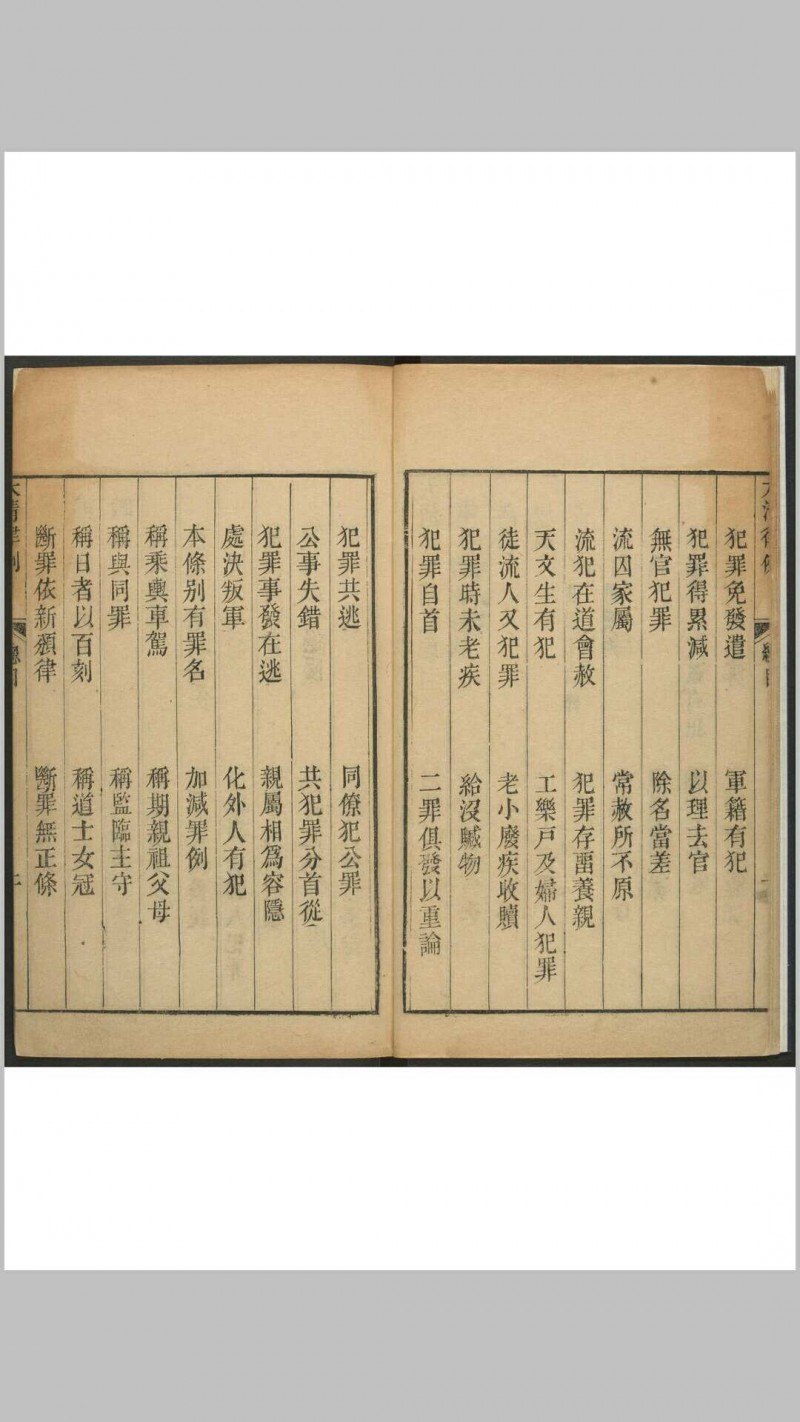 犯罪免發遣　軍籍有犯
犯罪得累減　以理去官
無官犯罪　除名當差
流囚家屬　常赦所不原
流犯在道會赦　犯罪存畱養親
天文生有犯　工樂戸及婦人犯罪
徒流人又犯罪　老小廢疾收贖
犯罪時未老疾　給沒贓物
犯罪自首　二罪俱發以重論
犯罪共逃　同僚犯公罪
公事失錯　共犯罪分首從
犯罪事發在逃　親屬相爲容隱
處決叛軍　化外人有犯
本條别有罪名　加減罪例
稱乘輿車駕　稱期親祖父母
稱與同罪　稱監臨主守
稱日者以百刻　稱道士女冠
斷罪依新頒律　斷罪無正條